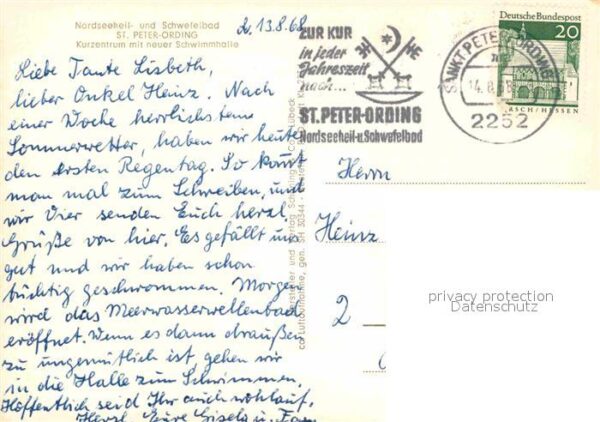 Nordseeheil- und Schwefelbad
ST. PETER-ORDING
Kurzentrum mit neuer Schwimmhalle
2. 13.8.68
Liebe Tante Lisbeth,
lieber Onkel Heinz. Nach
einer Woche herrlichstem
Sommerwetter, haben wir heute
den ersten Regentag. So kommt
man mal zum Schreiben, und
wir Vier senden Euch herzl
Grüße von hier. Es gefällt uns
gut und wir haben schon
tüchtig geschwommen. Morgen
wird das Meerwasserwellenbad
eröffnet. Wenn es dann draußen
zu ungemütlich ist, gehen wir
in die Halle zum Schwimmen.
Hoffentlich seid Ihr auch wohlauf.
Herzl. Eure Gisela u. Fam
ZUR KUR
in jeder
Jahreszeit
nach...
ST. PETER-ORDING
Nordseeheil-u. Schwefelbad
SANKT PETER-ORDING
2252
Deutsche Bundespost
20
RSCH/HESSEN
Herrn
Heinz
2
privacy protection
Datenschutz